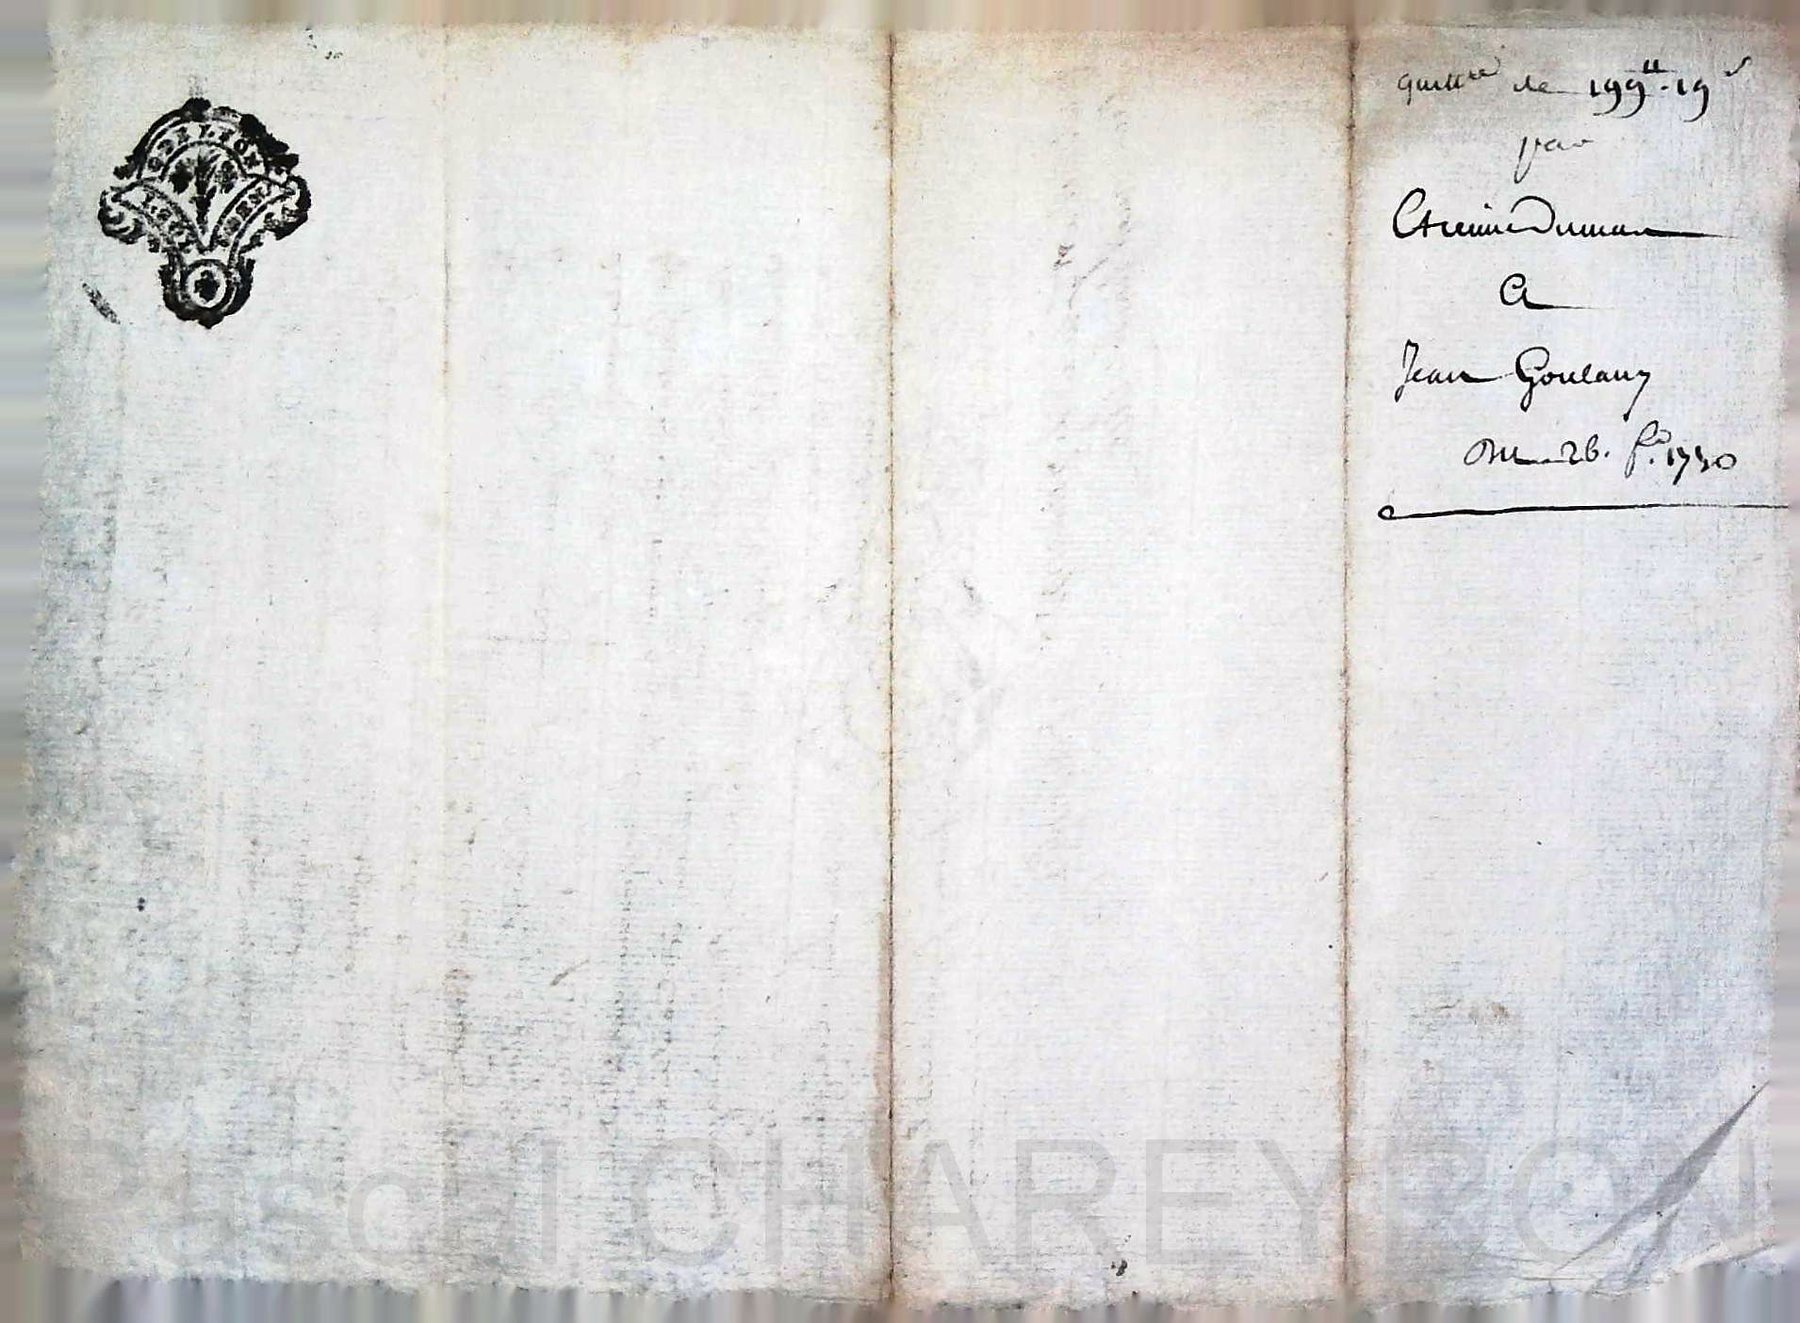 quitt.ce de 199ll.19s
par
Etienne Dumas
A
Jean Goulard
Du 26. f.er 1750
Paschl CHAREYRON